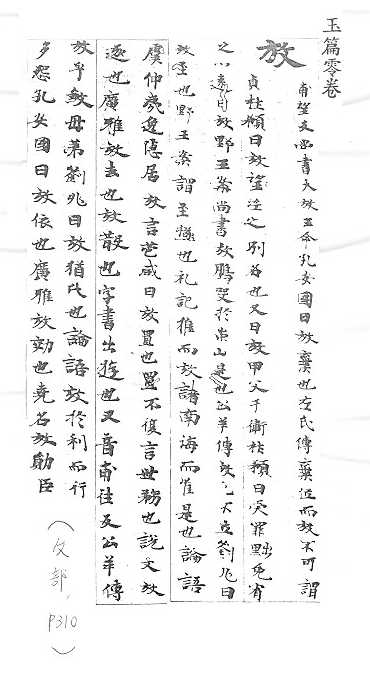 玉篇零卷
放
甫望文尚書大放王命孔安國曰放棄也左氏傳棄位而放不可謂
貞杜預曰放淫之別名也又曰放甲父于衛杜預曰受罪黜免宥
之以遠曰放野王案尚書放驩兜於崇山是也公羊傳放不立劉兆曰
放至也野王案謂至極也礼記推而放諸南海而准是也論語
虞仲夷逸隱居放言苞咸曰放置也置不復言世務也說文放
逐也廣雅放去也放散也字書出遊也又音甫往反公羊傳
放乎敏母弟劉兆曰放猶比也論語放於利而行
多怨孔安國曰放依也廣雅放効也堯名放勛臣
(攵部, P310)